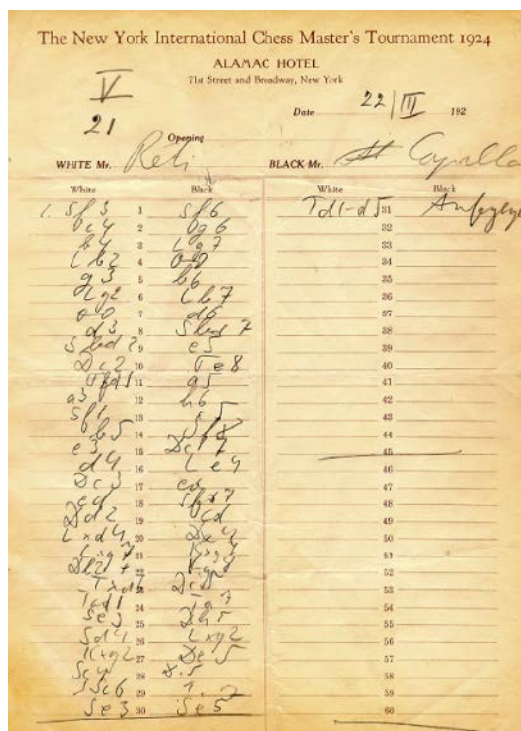 The New York International Chess Master's Tournament 1924
ALAMAC HOTEL
71st Street and Broadway, New York
V
21
Date 22/III 192
Opening
WHITE Mr. Réti BLACK Mr.
White Black White Black
1. Sf3 1 Sf6 Td1-d5 31
c4 2 g6 32
b4 3 Lg7 33
Lb2 4 0-0 34
g3 5 b6 35
Lg2 6 Lb7 36
0-0 7 d6 37
d3 8 Sbd7 38
Sbd2 9 e5 39
Dc2 10 Te8 40
Tfd1 11 a5 41
a3 12 h6 42
Sf1 13 c5 43
b5 14 Sf8 44
e3 15 Dc7 45
d4 16 Le4 46
Dc3 17 ed 47
ed 18 48
Dd2 19 cd 49
Lxd4 20 De4 50
Lxg7 21 Kxg7 51
22 52
Txd4 23 53
Tad1 24 54
Se3 25 Dh5 55
Sd4 26 Lxg2 56
Kxg2 27 De5 57
Sc4 28 58
Sc6 29 59
Se3 30 Se5 60